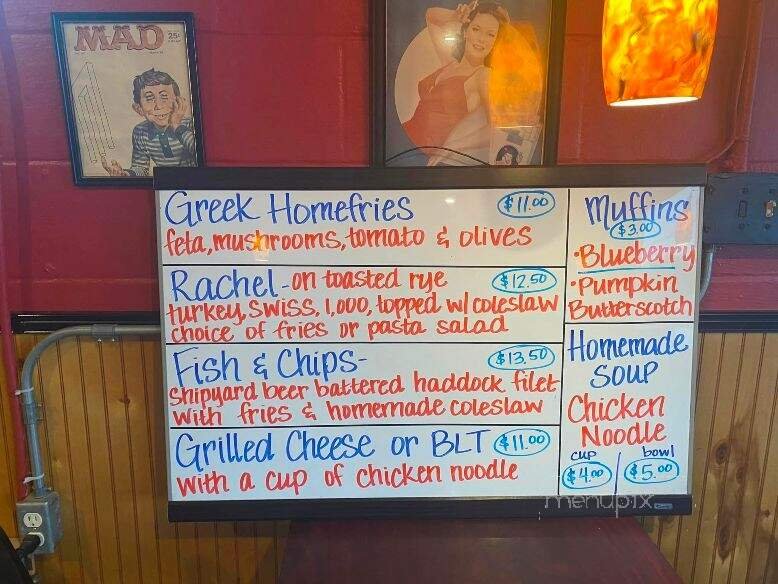 MAD
25¢
Greek Homefries $11.00
feta, mushrooms, tomato & olives
Rachel - on toasted rye $12.50
turkey, swiss, 1,000, topped w/ coleslaw
choice of fries or pasta salad
Fish & Chips- $13.50
Shipyard beer battered haddock filet
with fries & homemade coleslaw
Grilled Cheese or BLT $11.00
with a cup of chicken noodle
Muffins
$3.00
•Blueberry
•Pumpkin
Butterscotch
Homemade
SOUP
Chicken
Noodle
cup bowl
$4.00 $5.00
menupix